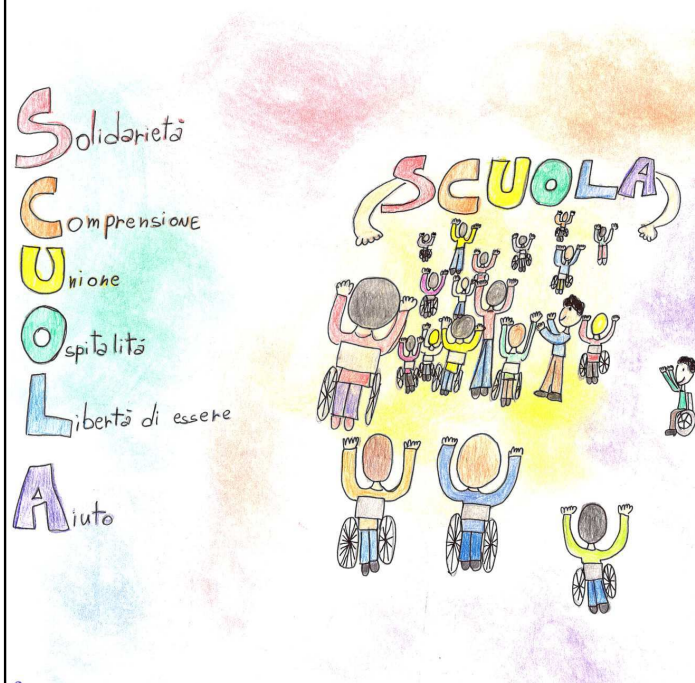 Solidarietà
Comprensione
Unione
Ospitalità
Libertà di essere
Aiuto
SCUOLA